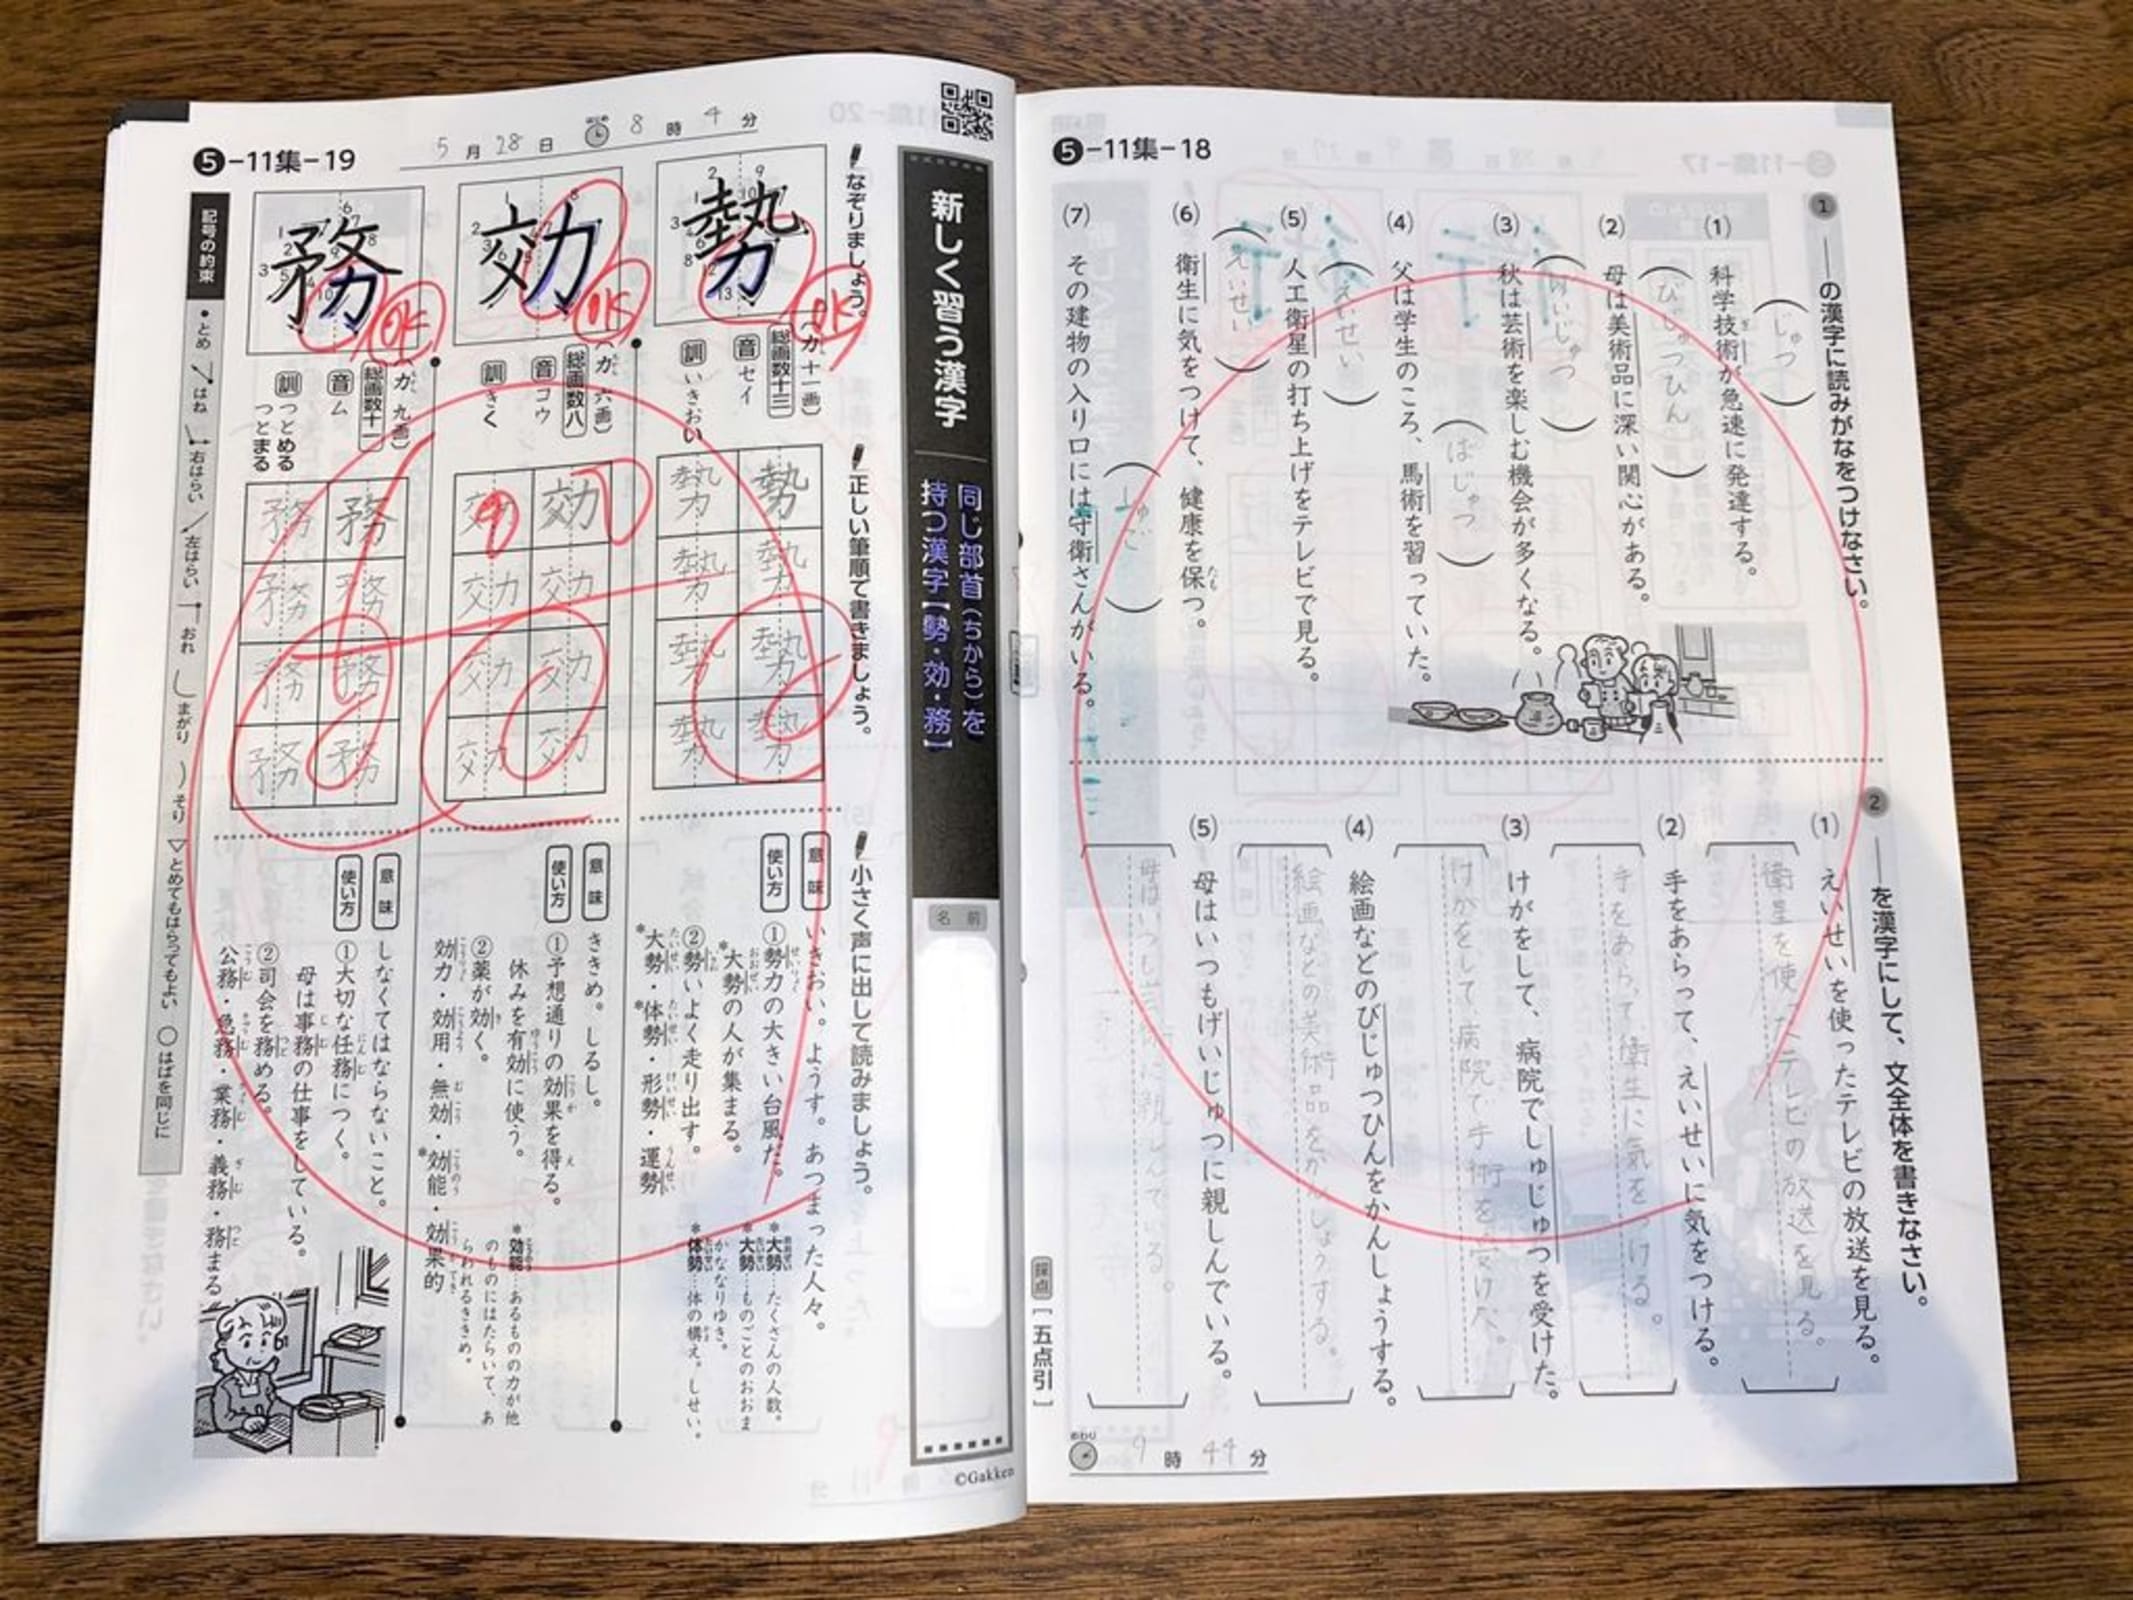 ❺-11集-18
① ——の漢字に読みがなをつけなさい。
(1) 科学技術が急速に発達する。
ぎ
(じゅつ)
(2) 母は美術品に深い関心がある。
(びじゅつひん)
(3) 秋は芸術を楽しむ機会が多くなる。
(げいじゅつ)
(4) 父は学生のころ、馬術を習っていた。
(ばじゅつ)
(5) 人工衛星の打ち上げをテレビで見る。
(えいせい)
(6) 衛生に気をつけて、健康を保つ。
たも
(えいせい)
(7) その建物の入り口には守衛さんがいる。
(しゅご)
② ——を漢字にして、文全体を書きなさい。
(1) えいせいを使ったテレビの放送を見る。
衛星を使ったテレビの放送を見る。
(2) 手をあらって、えいせいに気をつける。
手をあらって、衛生に気をつける。
(3) けがをして、病院でしゅじゅつを受けた。
けがをして、病院で手術を受けた。
(4) 絵画などのびじゅつひんをかんしょうする。
絵画などの美術品をかんしょうする。
(5) 母はいつもげいじゅつに親しんでいる。
母はいつも芸術に親しんでいる。
採点 [五点引]
おわり 9時44分
❺-11集-19
5月28日 はじめ 8時4分
新しく習う漢字
同じ部首(ちから)を
持つ漢字【勢・効・務】
名前
©Gakken
なぞりましょう。
正しい筆順で書きましょう。
小さく声に出して読みましょう。
勢
OK
(力 十一画)
ちから
総画数十三
音 セイ
訓 いきおい
勢 勢 勢 勢
勢 勢 勢 勢
意味 いきおい。ようす。あつまった人々。
使い方 ①勢力の大きい台風だ。
せいりょく
*大勢の人が集まる。
おおぜい
②勢いよく走り出す。
いきお
*大勢・*体勢・形勢・運勢
たいせい たいせい けいせい うんせい
*大勢…たくさんの人数。
おおぜい
*大勢…ものごとのおおま
たいせい
かななりゆき。
*体勢…体の構え。しせい。
たいせい かま
効
OK
(力 六画)
ちから
総画数八
音 コウ
訓 きく
効 効 効 効
効 効 効 効
意味 ききめ。しるし。
使い方 ①予想通りの効果を得る。
こうか え
休みを有効に使う。
ゆうこう
②薬が効く。
き
効力・効用・無効・*効能・効果的
こうりょく こうよう むこう こうのう こうかてき
*効能…あるものの力が他
こうのう
のものにはたらいて、あ
らわれるききめ。
務
OK
(力 九画)
ちから
総画数十一
音 ム
訓 つとめる
つとまる
務 務 務 務
務 務 務 務
意味 しなくてはならないこと。
使い方 ①大切な任務につく。
にんむ
母は事務の仕事をしている。
じむ
②司会を務める。
つと
公務・急務・業務・義務・務まる
こうむ きゅうむ ぎょうむ ぎむ つと
記号の約束
・とめ はね 右はらい 左はらい おれ まがり そり ▽とめてもはらってもよい ○はばを同じに